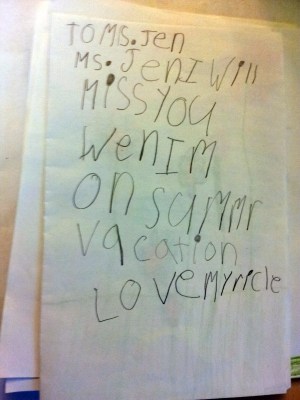 TO Ms. Jen
Ms. Jen I Will
MISS YOU
Wen I M
ON SUMMr
Vacation
LOVe Myricle